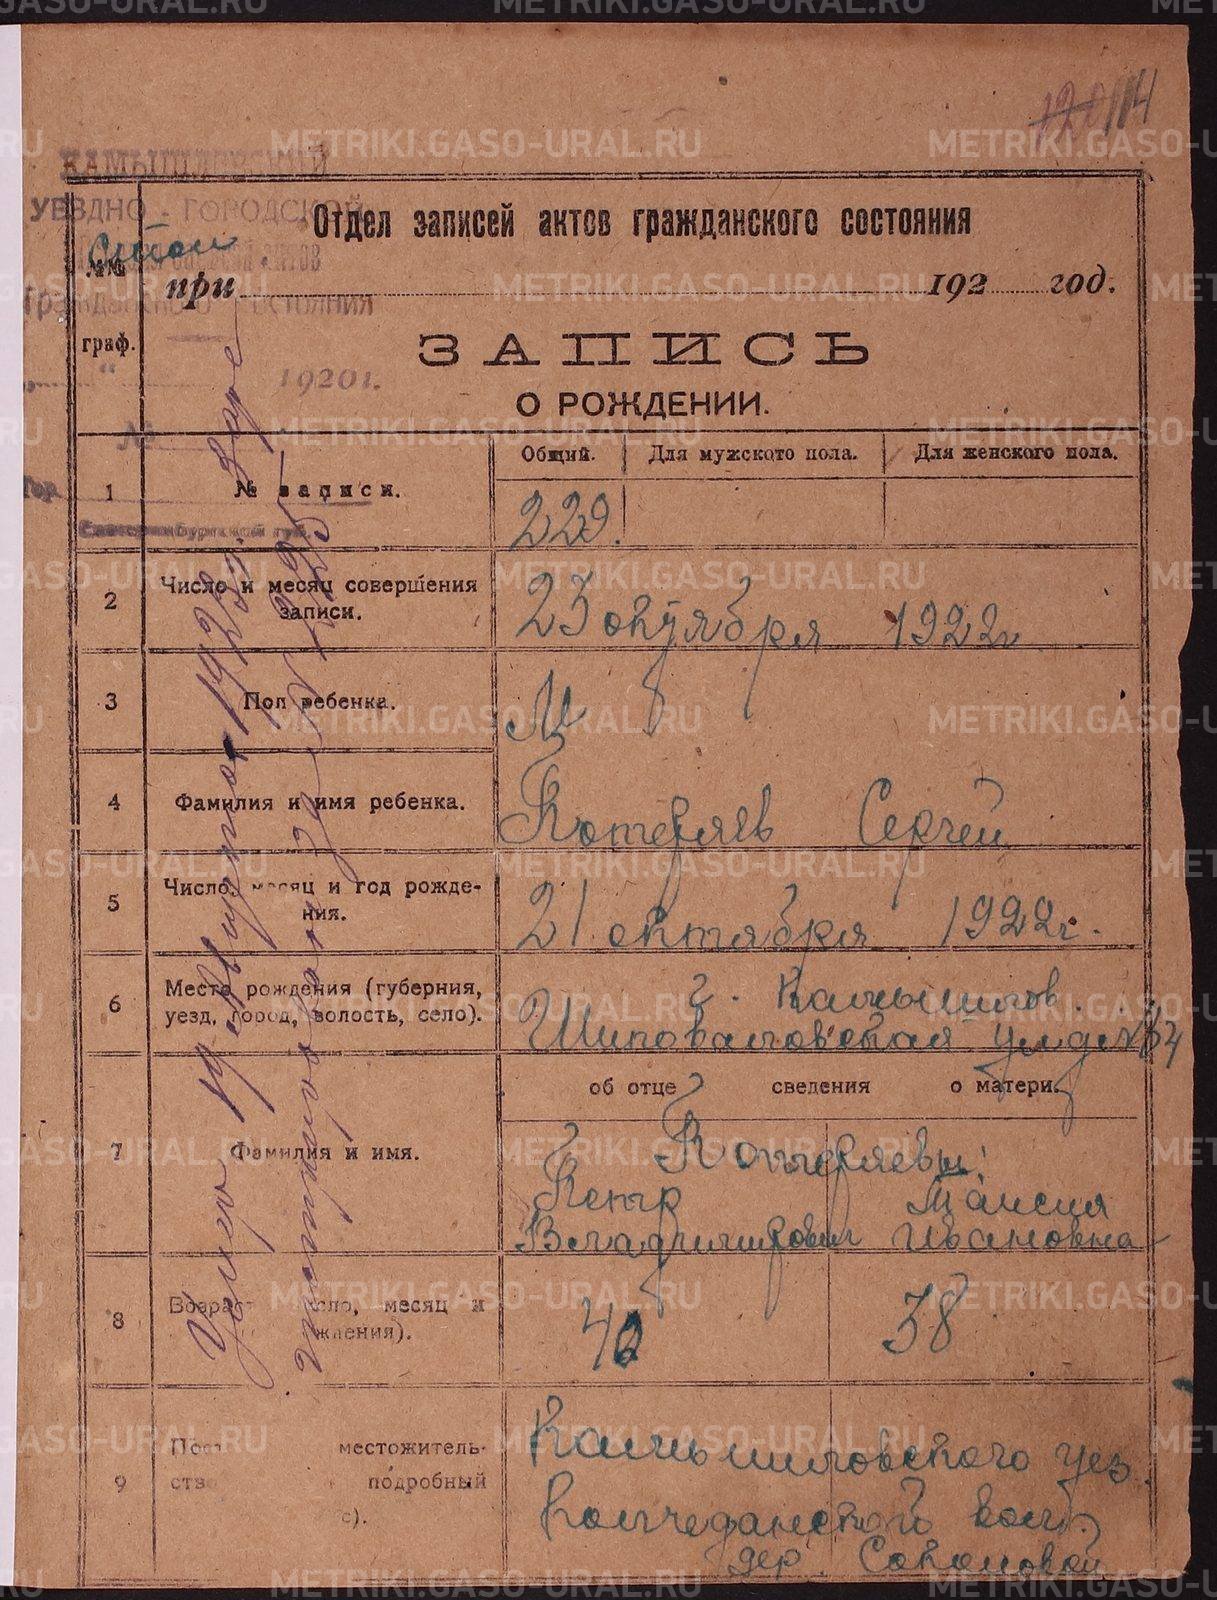 114
КАМЫШЛОВСКИЙ
УЕЗДНО - ГОРОДСКОЙ
Стол
записей актов
Гражданского состояния
" 1920 г.
№
гор.
Екатеринбургской губ.
Отдел записей актов гражданского состояния
при 192 год.
№№ граф.
ЗАПИСЬ
О РОЖДЕНИИ.
Общий. Для мужского пола. Для женского пола.
1 № записи. 229.
2 Число и месяц совершения
записи. 23 октября 1922 г.
3 Пол ребенка. М
4 Фамилия и имя ребенка. Котеряев Сергей
5 Число, месяц и год рожде-
ния. 21 октября 1922 г.
6 Место рождения (губерния,
уезд, город, волость, село). г. Камышлов.
Шиповаловская ул. д. №
об отце сведения о матери.
7 Фамилия и имя.
Котеряевы:
Петр Таисия
Владимирович Ивановна
8 Возраст число, месяц и
ждения). 40 38
9 Пост местожитель-
ство подробный
с). Камышловского уез.
Колчеданской вол.
дер. Соколовой
Умер 19 августа 192
запись за № 225
METRIKI.GASO-URAL.RU